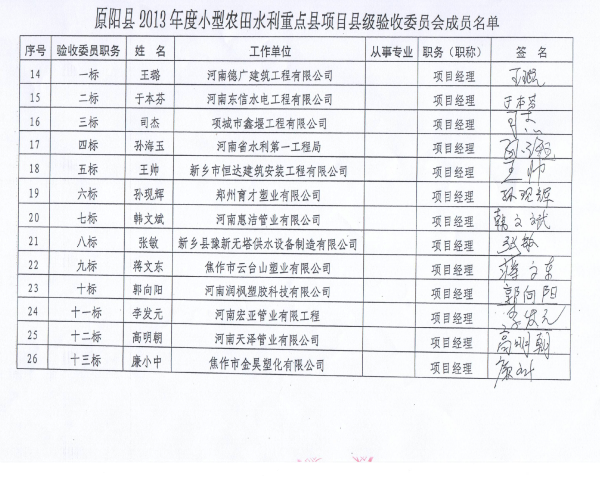 原阳县2013年度小型农田水利重点县项目县级验收委员会成员名单
序号 验收委员职务 姓 名 工作单位 从事专业 职务（职称） 签 名
14 一标 王璐 河南德广建筑工程有限公司 项目经理 王璐
15 二标 于本芬 河南东信水电工程有限公司 项目经理 于本芬
16 三标 司杰 项城市鑫堰工程有限公司 项目经理 司杰
17 四标 孙海玉 河南省水利第一工程局 项目经理
18 五标 王帅 新乡市恒达建筑安装工程有限公司 项目经理 王帅
19 六标 孙现辉 郑州育才塑业有限公司 项目经理 孙现辉
20 七标 韩文斌 河南惠洁管业有限公司 项目经理 韩文斌
21 八标 张敏 新乡县豫新无塔供水设备制造有限公司 项目经理 张敏
22 九标 蒋文东 焦作市云台山塑业有限公司 项目经理 蒋文东
23 十标 郭向阳 河南润枫塑胶科技有限公司 项目经理 郭向阳
24 十一标 李发元 河南宏亚管业有限工程 项目经理 李发元
25 十二标 高明朝 河南天泽管业有限公司 项目经理 高明朝
26 十三标 廉小中 焦作市金昊塑化有限公司 项目经理